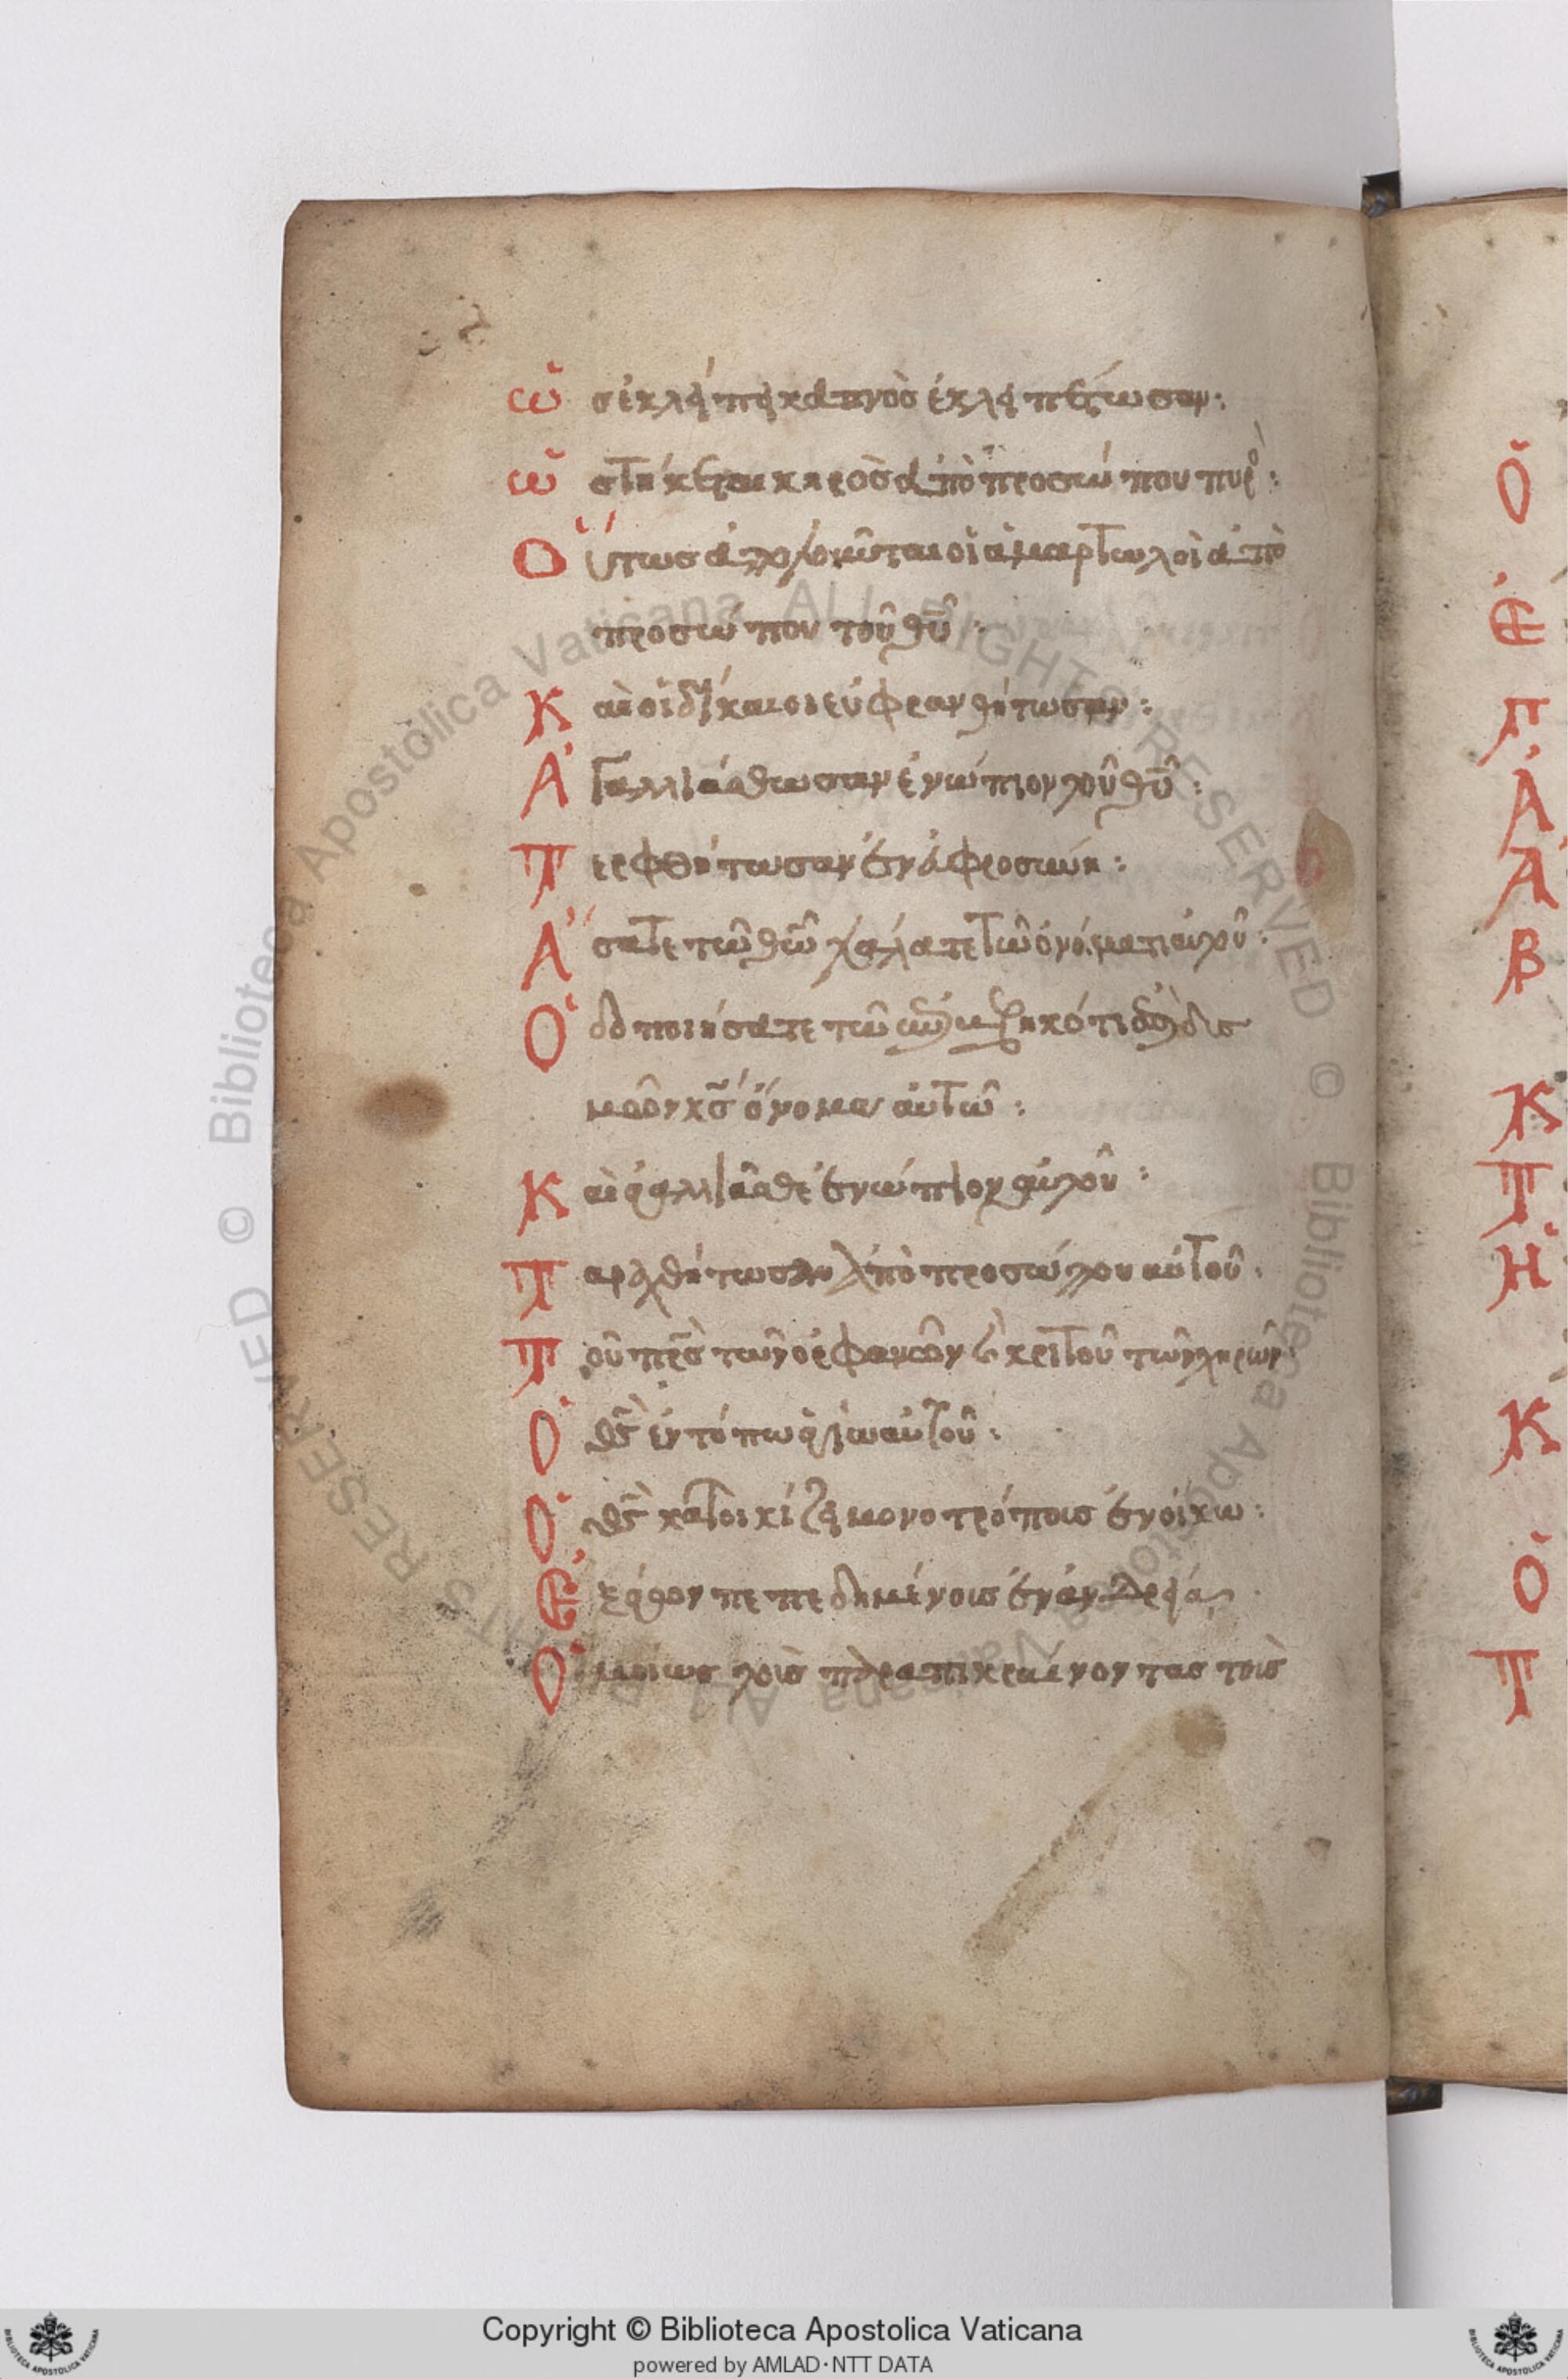 ὡσ ἐκλείπει καπνὸσ ἐκλειπέτωσαν:
ὡσ τήκεται κηρὸσ ἀπὸ προσώπου πυρὸ:
Οὕτωσ ἀπολοῦνται οἱ ἁμαρτωλοὶ ἀπὸ
προσώπου τοῦ θῦ:
Καὶ οἱ δίκαιοι εὐφρανθήτωσαν:
Ἀγαλλιάσθωσαν ἐνώπιον τοῦ θῦ:
Τερφθήτωσαν ἐν εὐφροσύνη:
Ἄσατε τῶ θῶ ψάλατε τῶ ὀνόματι αὐτοῦ:
Ὁδοποιήσατε τῶ ἐπιβεβηκότι ἐπὶ δυσ
μῶν κσ ὄνομα αὐτῶ:
Καὶ ἀγαλλιᾶσθε ἐνώπιον αὐτοῦ:
Ταραχθήτωσαν ἀπὸ προσώπου αὐτοῦ:
Τοῦ πρσ τῶν ὀρφανῶν καὶ κριτοῦ τῶν χηρῶν
Ὁ θσ ἐν τόπω ἁγίω αὐτοῦ:
Ὁ θσ κατοικίζει μονοτρόπουσ ἐν οἴκω:
Ἐξάγων πεπεδημένουσ ἐν ἀνδρείᾳ
Ὁμοίωσ τοὺσ παραπικραίνοντασ τοὺσ
Copyright © Biblioteca Apostolica Vaticana
powered by AMLAD·NTT DATA